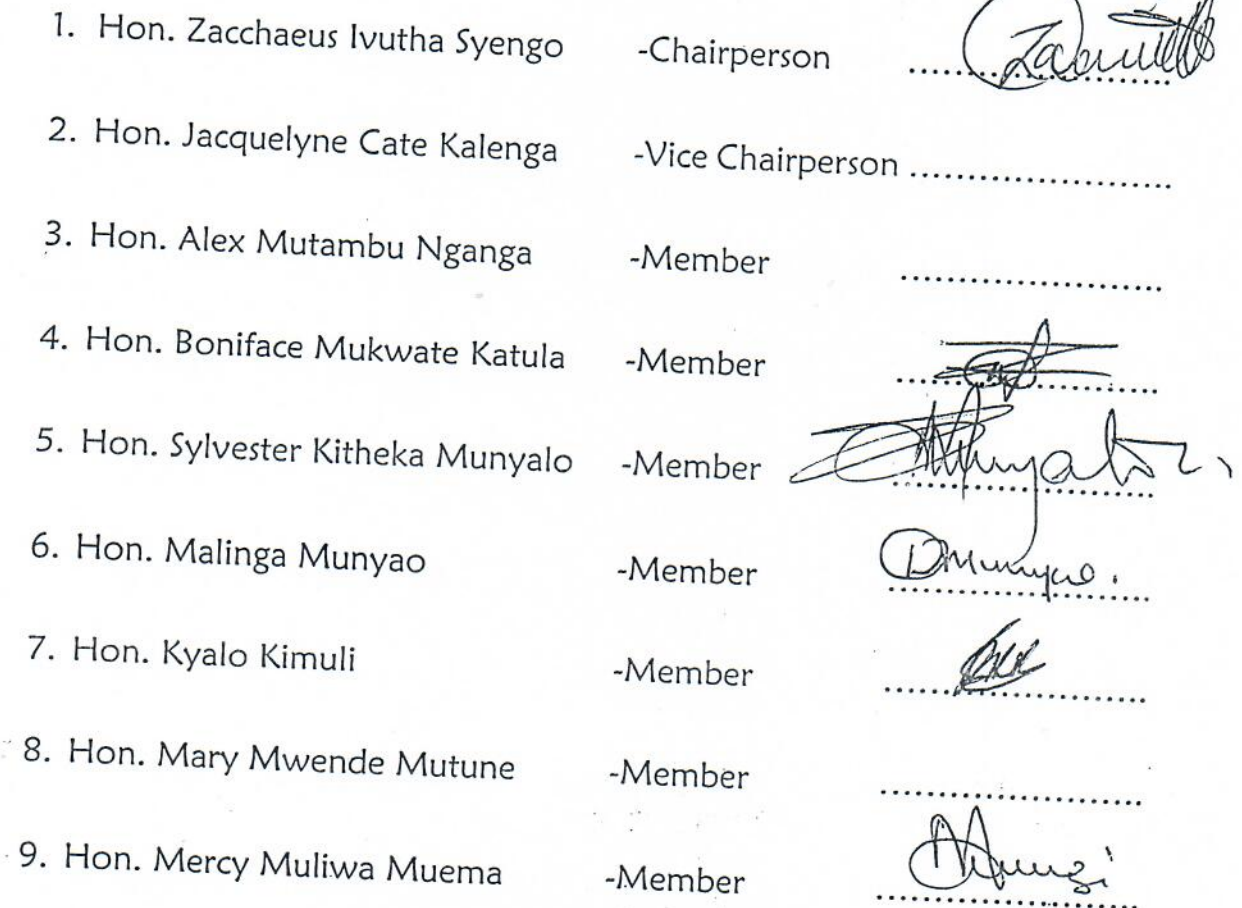 1. Hon. Zacchaeus Ivutha Syengo -Chairperson ........................
2. Hon. Jacquelyne Cate Kalenga -Vice Chairperson ........................
3. Hon. Alex Mutambu Nganga -Member ........................
4. Hon. Boniface Mukwate Katula -Member ........................
5. Hon. Sylvester Kitheka Munyalo -Member ........................
6. Hon. Malinga Munyao -Member ........................
7. Hon. Kyalo Kimuli -Member ........................
8. Hon. Mary Mwende Mutune -Member ........................
9. Hon. Mercy Muliwa Muema -Member ........................